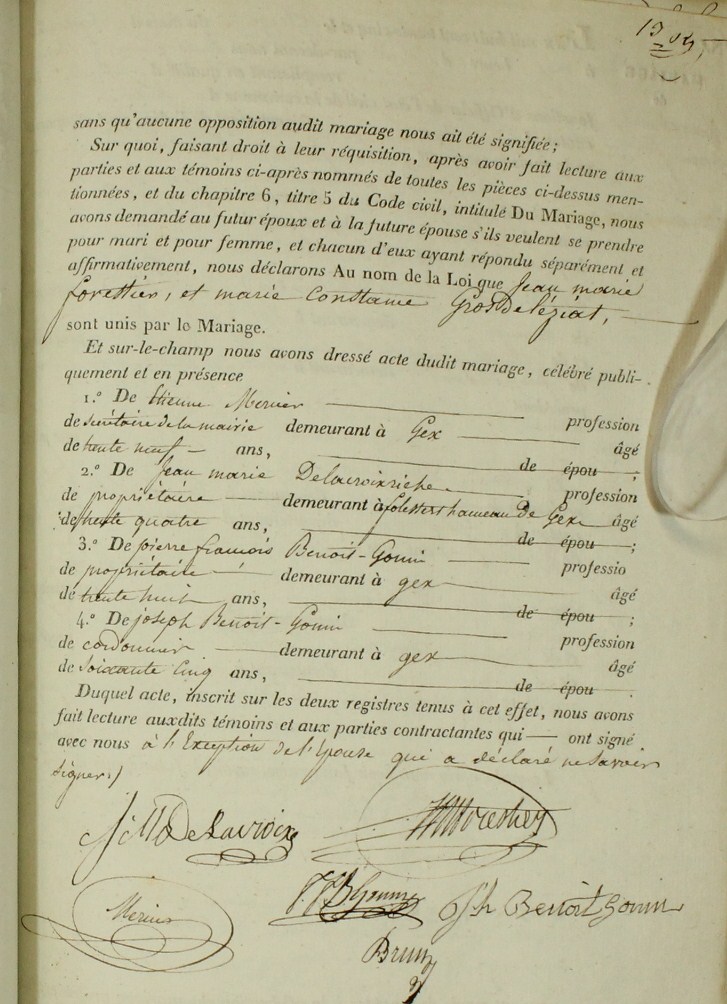 sans qu'aucune opposition audit mariage nous ait été signifiée ;
Sur quoi, faisant droit à leur réquisition, après avoir fait lecture aux
parties et aux témoins ci-après nommés de toutes les pièces ci-dessus men-
tionnées, et du chapitre 6, titre 5 du Code civil, intitulé Du Mariage, nous
avons demandé au futur époux et à la future épouse s'ils veulent se prendre
pour mari et pour femme, et chacun d'eux ayant répondu séparément et
affirmativement, nous déclarons Au nom de la Loi que Jean marie
forestier, et marie Constance GrosDeléziat, —
sont unis par le Mariage.
Et sur-le-champ nous avons dressé acte dudit mariage, célébré publi-
quement et en présence
1.º De Etienne Mercier — profession
de secrétaire de la mairie demeurant à Gex — âgé
de trente neuf — ans, — de épou ;
2.º De Jean marie Delacroix riche — profession
de propriétaire — demeurant à hameau De Gex âgé
de trente quatre ans, — de épou ;
3.º De pierre francois Benoit-Gonin — professio
de propriétaire — demeurant à gex — âgé
de trente huit ans, — de épou ;
4.º De joseph Benoit-Gonin — profession
de cordonnier — demeurant à gex — âgé
de Soixante Cinq ans, — de épou .
Duquel acte, inscrit sur les deux registres tenus à cet effet, nous avons
fait lecture auxdits témoins et aux parties contractantes qui — ont signé
avec nous à l'Exception de l'Epouse qui a déclaré ne Savoir
signer./
Delacroix
Mercier
Jh Benoit Gonin